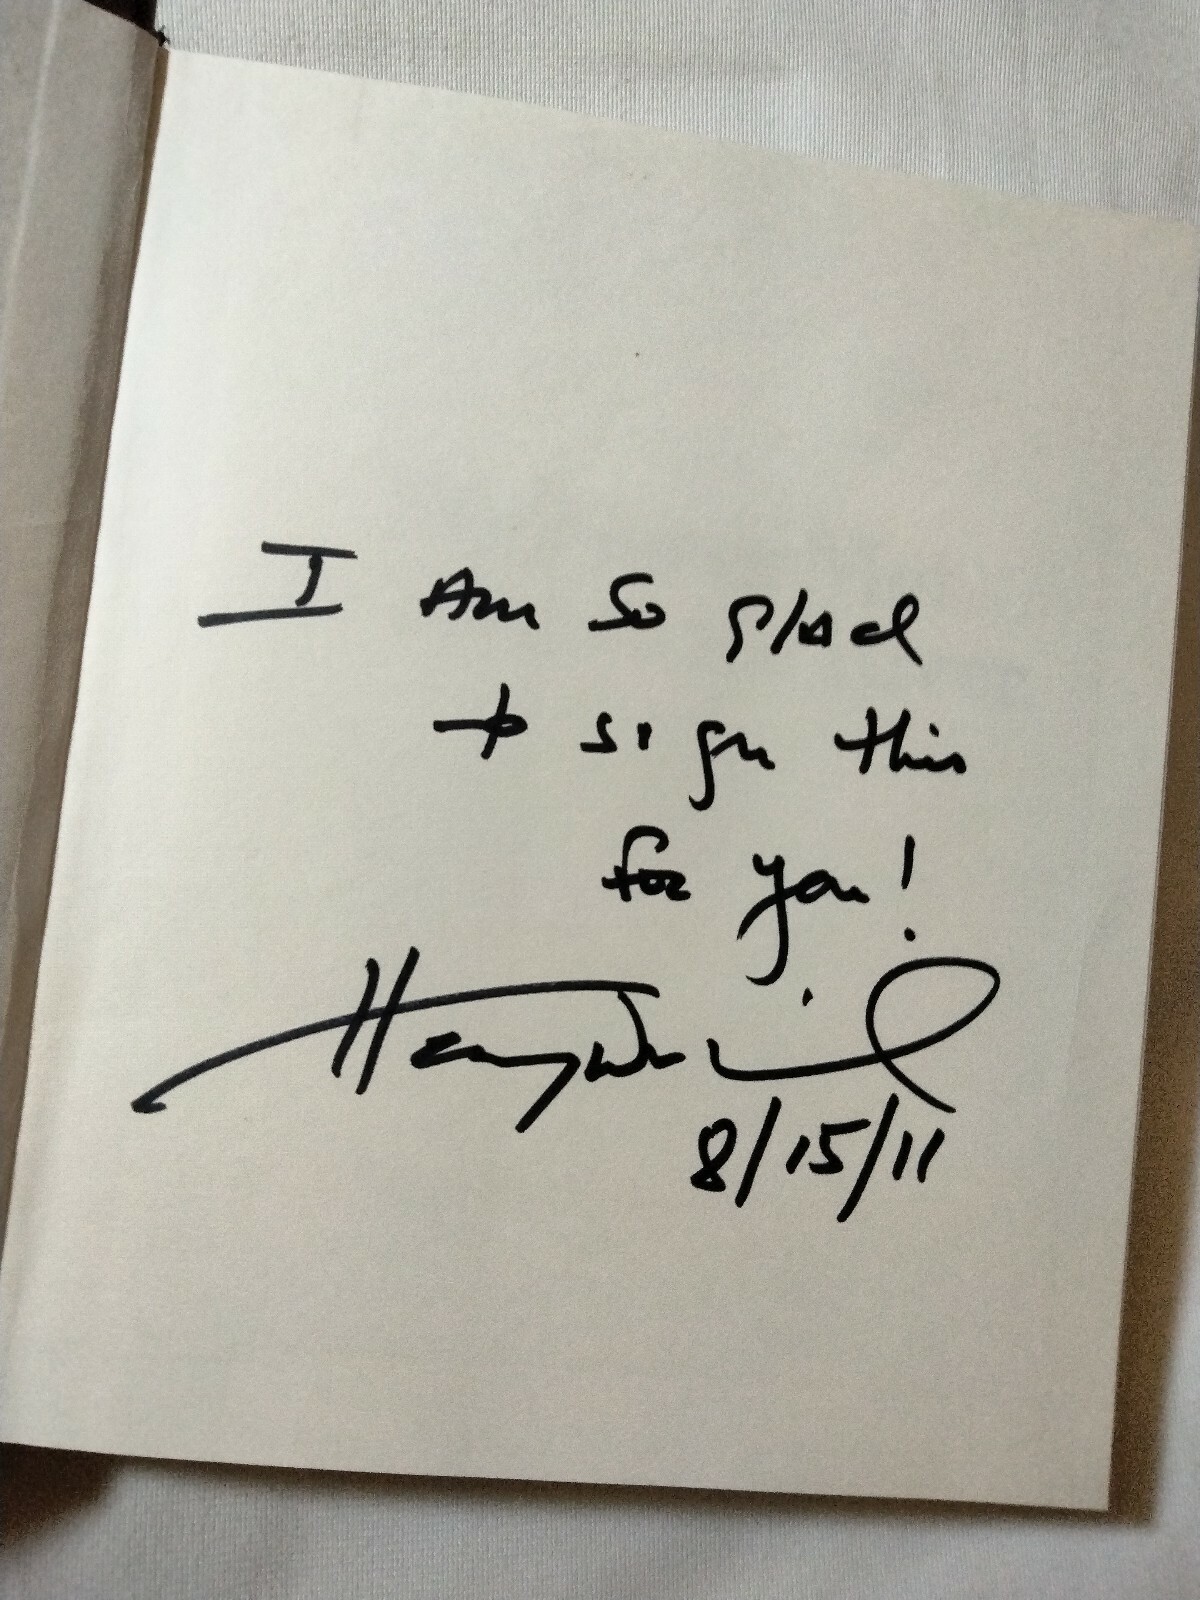 I Am So glad
to sign this
for you!
Henry
8/15/11